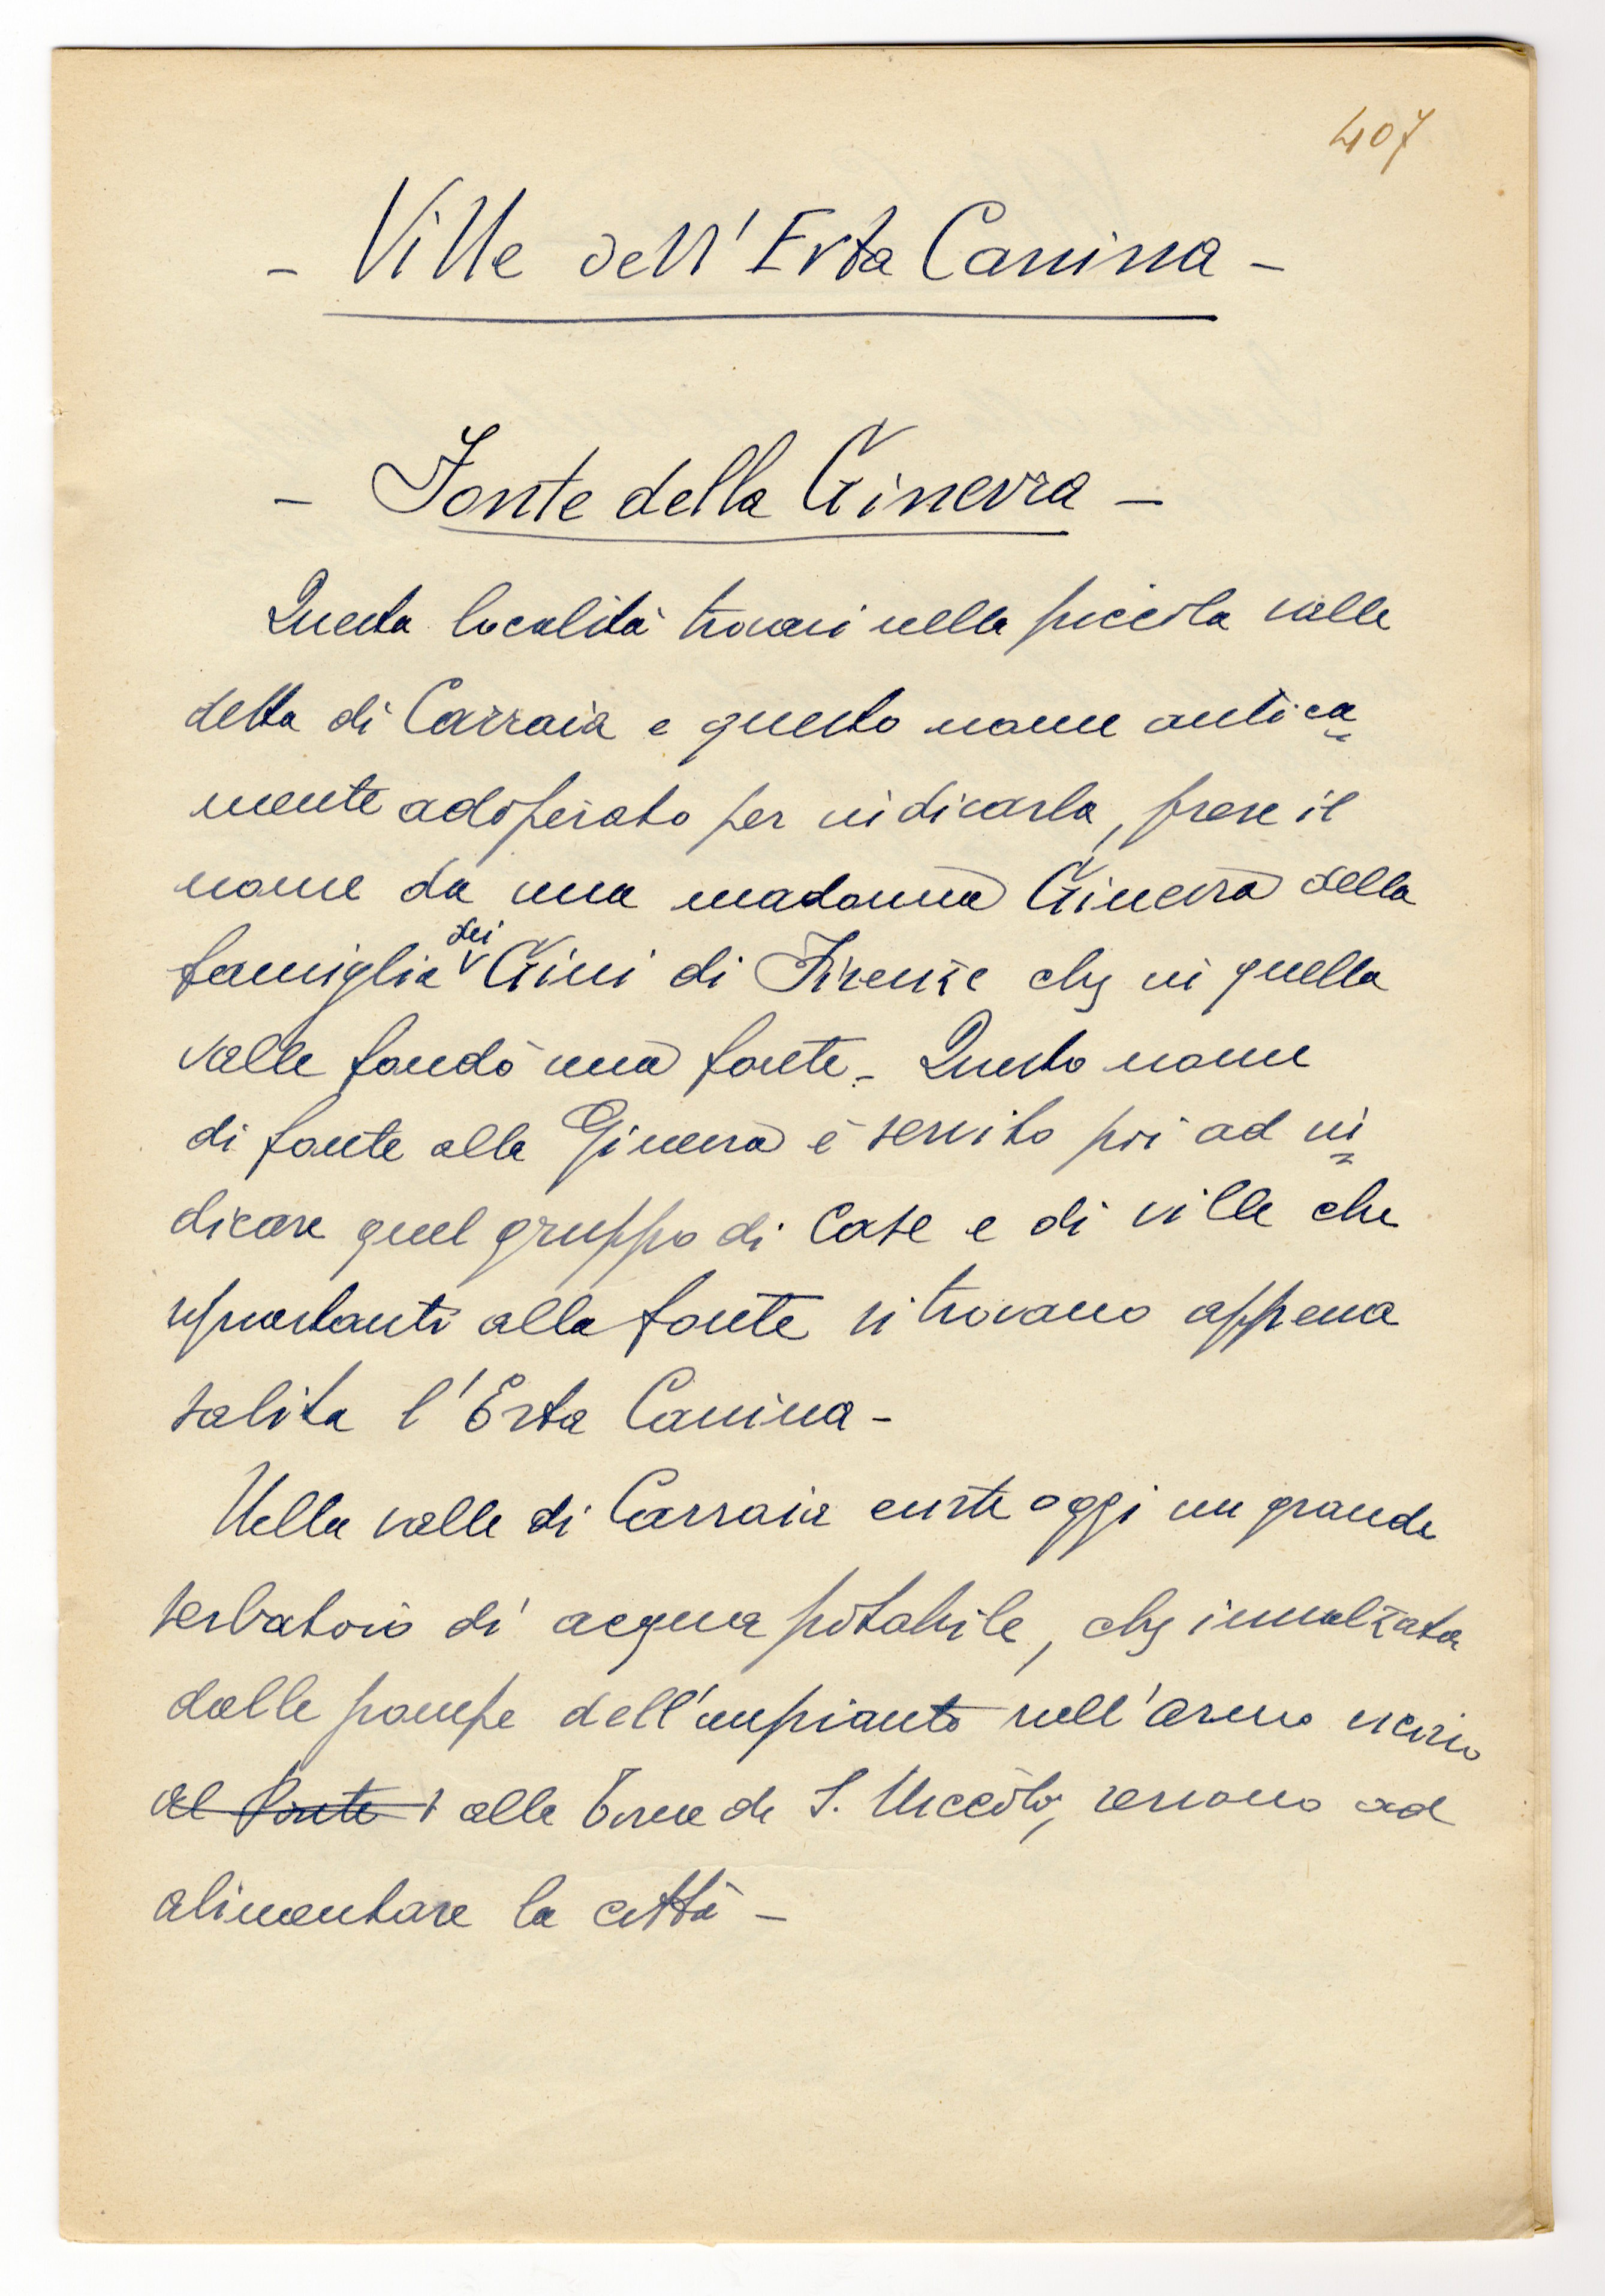 407
- Ville dell'Erta Canina -
- Fonte della Ginevra -
Questa località trovasi nella piccola valle
detta di Carraia e questo nome antica
mente adoperato per indicarla, prese il
nome da una madonna Ginevra della
famiglia dei Gini di Firenze che in quella
valle fondò una fonte - Questo nome
di fonte alla Ginevra è servito poi ad in
dicare quel gruppo di case e di ville che
soprastanti alla fonte si trovano appena
salita l'Erta Canina -
Nella valle di Carraia esiste oggi un grande
serbatoio di acqua potabile, che innalzata
dalle pompe dell'impianto sull'arno vicino
al Ponte alla Torre di S. Niccolò, servono ad
alimentare la città -